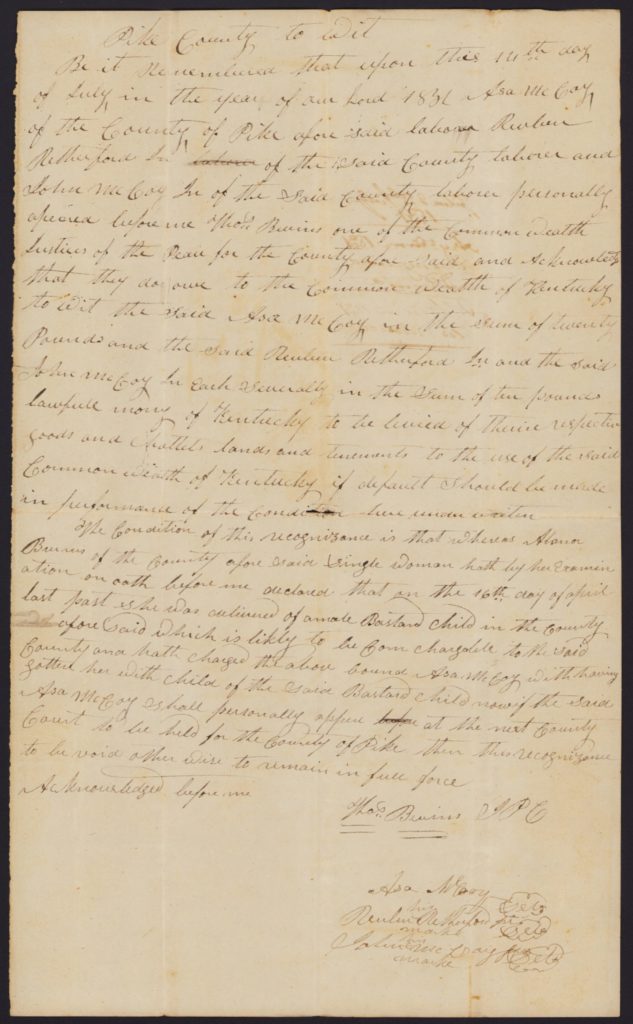 Pike County to wit
Be it Remembered that upon this 14th day
of July in the year of our lord 1831 Asa McCoy
of the County of Pike afore said laborer Reuben
Retherford Jn laborer of the said County laborer and
John McCoy Jn of the said County laborer personally
apeired before me Thos Bevins one of the Common Wealth
Justices of the Peace for the County afore said and Acknowledg
that they do owe to the Common Wealth of Kentucky
to wit the said Asa McCoy in the sum of twenty
Pounds and the said Reuben Retherford Jn and the said
John McCoy Jn Each severally in the sum of ten pounds
lawfull mony of Kentucky to be levied of theire respective
goods and Chattels lands and tenements to the use of the said
Common Wealth of Kentucky if default should be made
in performance of the Condition here under writen
The Condition of this recognizance is that whereas
Bevins of the County afore said single woman hath by her Examin
ation on oath before me declared that on the 16th day of april
last past she was delivered of a male Bastard Child in the County
afore said which is likely to be Com chargable to the said
County and hath charged the above bound Asa McCoy with having
gotten her with Child of the said Bastard Child now if the said
Asa McCoy shall personally appear at the next County
Court to be held for the County of Pike then this recognizance
to be void other wise to remain in full force
Acknowledged before me
Thos Bevins J P C
Asa McCoy
his
Reuben Retherford
marke
John McCoy
marke